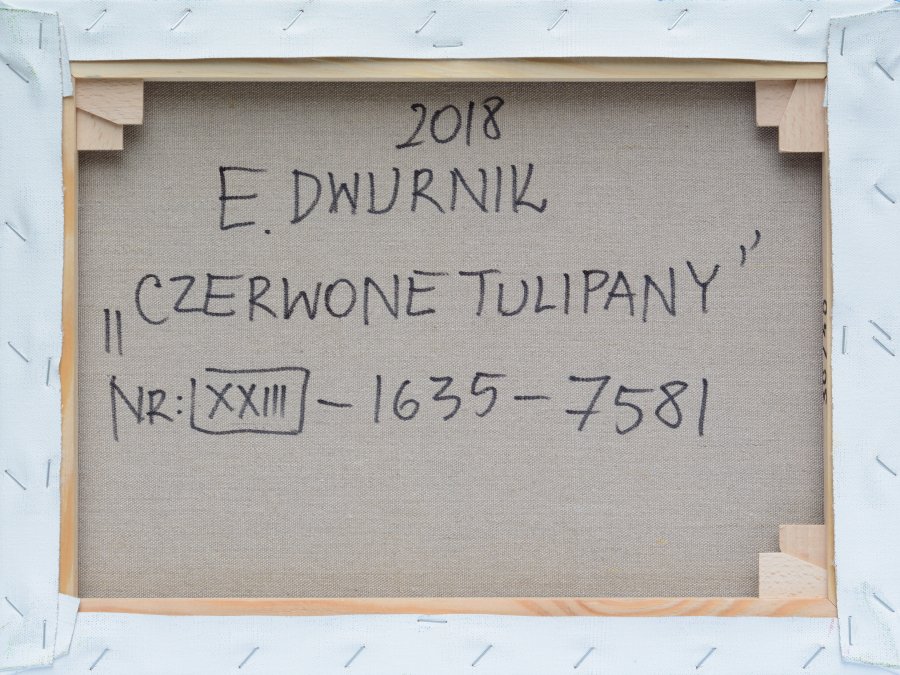 2018
E. DWURNIK
„CZERWONE TULIPANY”
NR: XXIII – 1635 – 7581